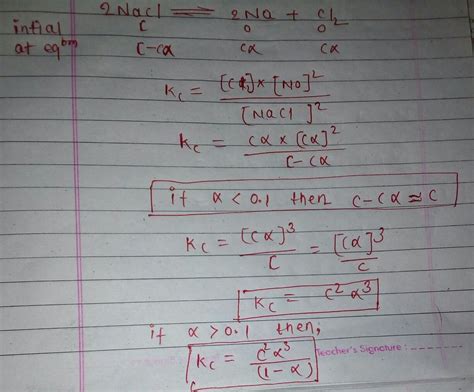 2NaCl ⇌ 2Na + Cl2
initial C 0 0
at eqbm C-Cα Cα Cα
Kc = [Cl2] × [Na]^2 / [NaCl]^2
Kc = Cα × [Cα]^2 / C-Cα
if α < 0.1 then C-Cα ≈ C
Kc = [Cα]^3 / C = [Cα]^3 / C
Kc = C^2 α^3
if α > 0.1 then,
Kc = C^2 α^3 / (1-α)
Teacher's Signature :